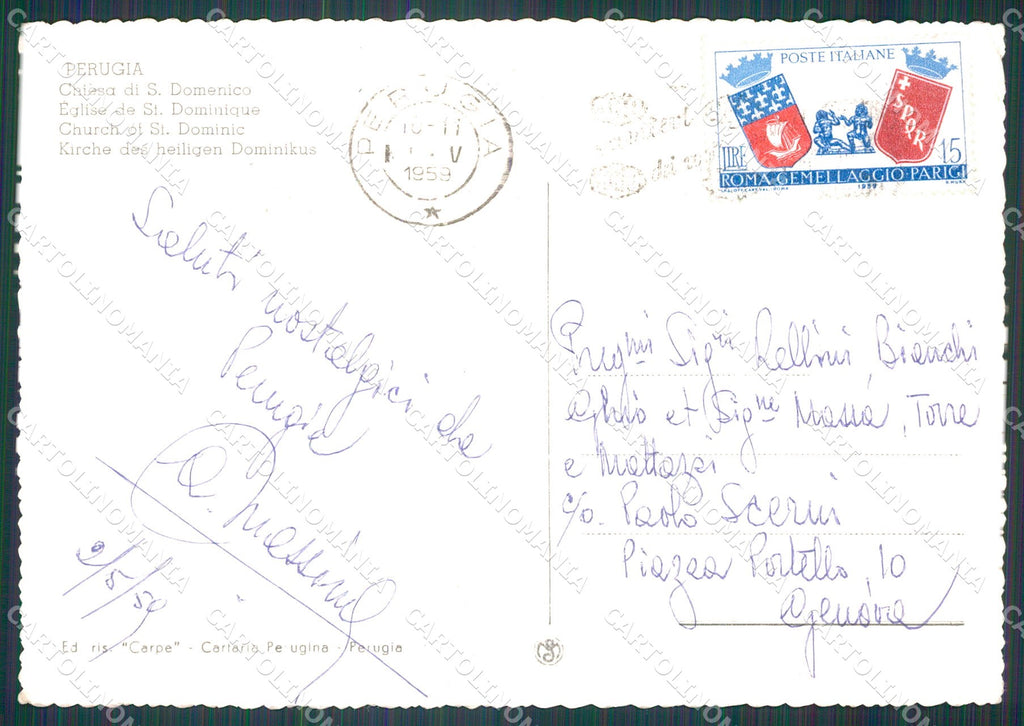 PERUGIA
Chiesa di S. Domenico
Eglise de St. Dominique
Church of St. Dominic
Kirche des heiligen Dominikus
PERUGIA
10-11
V
1959
POSTE ITALIANE
SPQR
LIRE 15
ROMA·GEMELLAGGIO·PARIGI
1959
Saluti nostalgici da
Perugia
9/5/59
Preg.mi Sig.ri Rellini, Bianchi
Ghio et Sig.ne Massa, Torre
e Mattazzi
c/o. Paolo Scerni
Piazza Portello, 10
Genova
Ed ris. "Carpe" - Cartaria Pe ugina - Perugia
CARTOLINOMANIA